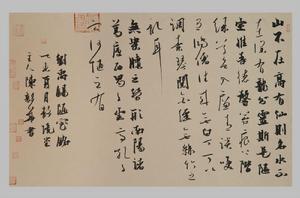 山不在高有仙則名水不
在深有龍則靈斯是陋
室惟吾德馨苔痕上階
綠草色入簾青談笑
有鴻儒往來無白丁可以
調素琴閱金經無絲竹之
亂耳
無案牘之勞形南陽諸
葛廬西蜀子雲亭孔子
云何陋之有
劉禹錫陋室銘
主人陳書